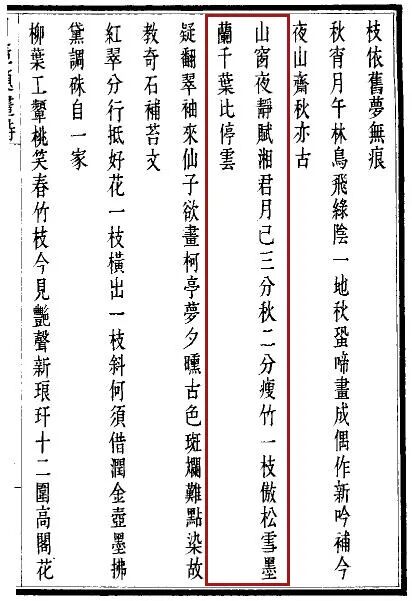 枝依舊夢無痕
秋宵月午林鳥飛綠陰一地秋蛩啼畫成偶作新吟補今
夜山齋秋亦古
山窗夜靜賦湘君月已三分秋二分瘦竹一枝倣松雪墨
蘭千葉比停雲
疑翻翠袖來仙子欲畫柯亭夢夕曛古色斑斕難點染故
教奇石補苔文
紅翠分行抵好花一枝橫出一枝斜何須借潤金壺墨拂
黛調硃自一家
柳葉工顰桃笑春竹枝今見艷聲新琅玕十二圍高閣花